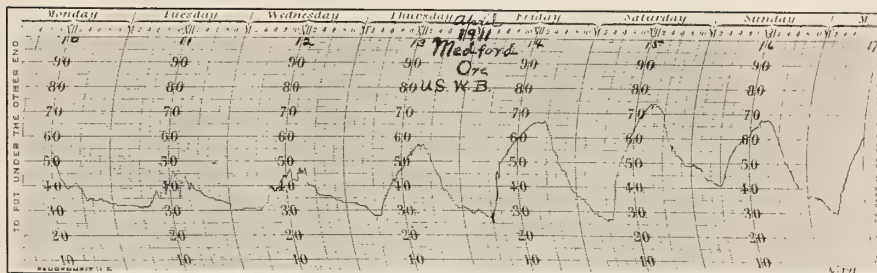 Monday Tuesday Wednesday Thursday Friday Saturday Sunday M
April
1911
10 11 12 13 14 15 16 17
Medford
Ore
U.S. W.B.
TO PUT UNDER THE OTHER END
90 90 90 90 90 90 90
80 80 80 80 80 80 80
70 70 70 70 70 70 70
60 60 60 60 60 60 60
50 50 50 50 50 50 50
40 40 40 40 40 40 40
30 30 30 30 30 30 30
20 20 20 20 20 20 20
10 10 10 10 10 10 10